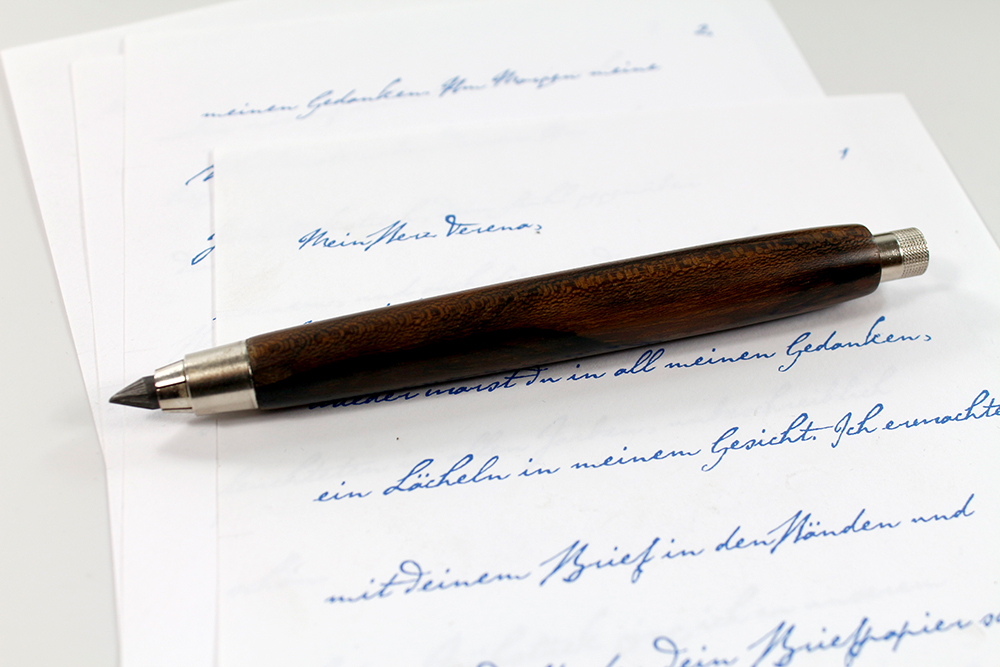 2
meinen Gedanken. Am Morgen meine
1
Mein Herz Verena,
wieder warst du in all meinen Gedanken,
ein Lächeln in meinem Gesicht. Ich erwachte
mit deinem Brief in den Händen und
Dein Briefpapier